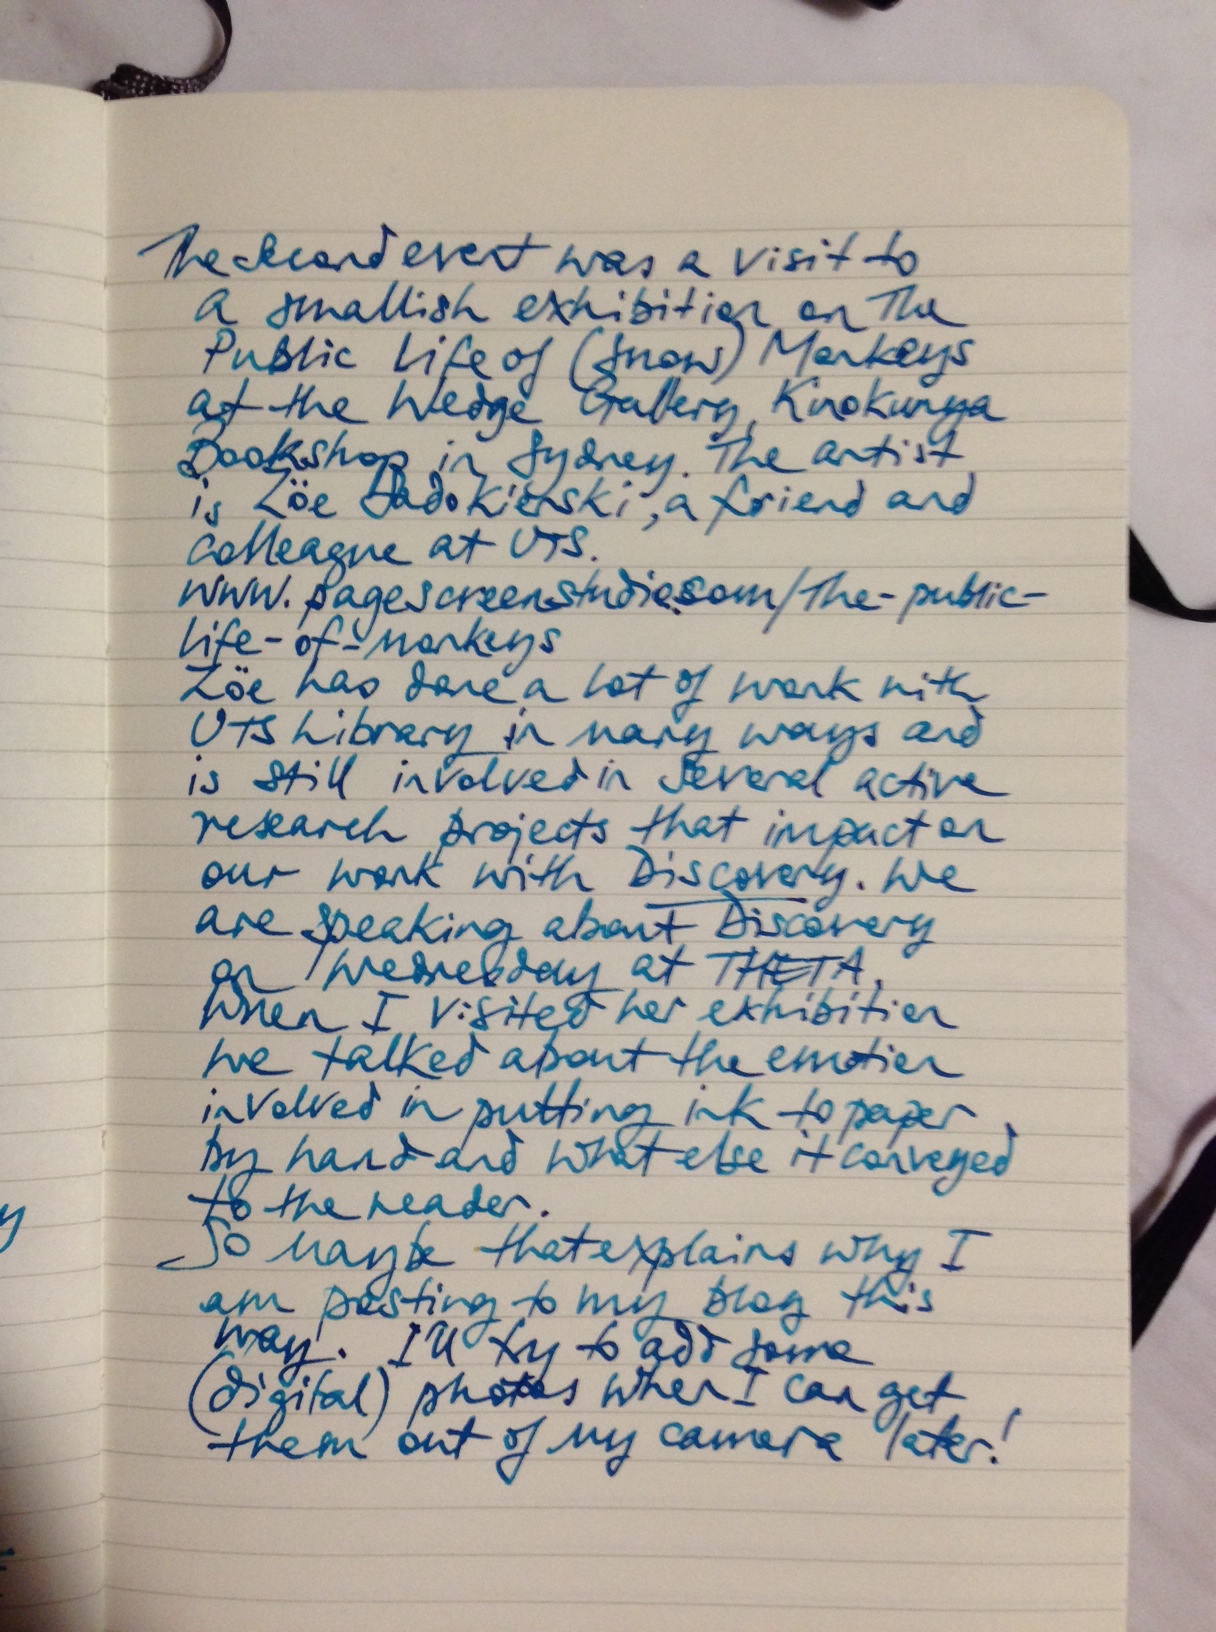 The second event was a visit to
a smallish exhibition on The
Public Life of (Snow) Monkeys
at the Wedge Gallery, Kinokunya
Bookshop in Sydney. The artist
is Zöe Sadokierski, a friend and
colleague at UTS.
www.pagescreenstudio.com/the-public-
life-of-monkeys
Zöe has done a lot of work with
UTS Library in many ways and
is still involved in several active
research projects that impact on
our work with Discovery. We
are speaking about Discovery
on Wednesday at THETA.
When I visited her exhibition
we talked about the emotion
involved in putting ink to paper
by hand and what else it conveyed
to the reader.
So maybe that explains why I
am posting to my blog this
way. I'll try to add some
(digital) photos when I can get
them out of my camera later!
y